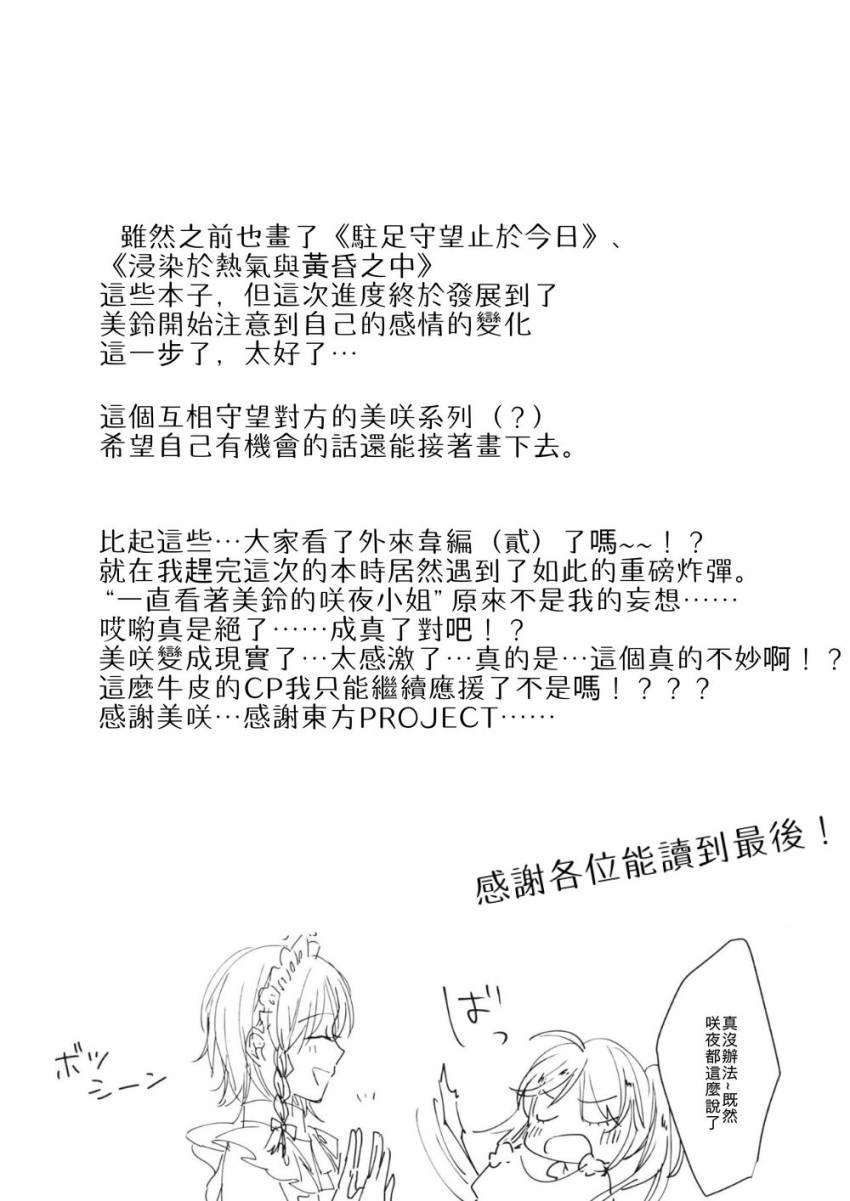 雖然之前也畫了《駐足守望止於今日》、
《浸染於熱氣與黃昏之中》
這些本子，但這次進度終於發展到了
美鈴開始注意到自己的感情的變化
這一步了，太好了…
這個互相守望對方的美咲系列（？）
希望自己有機會的話還能接著畫下去。
比起這些…大家看了外來韋編（貳）了嗎~~！？
就在我趕完這次的本時居然遇到了如此的重磅炸彈。
“一直看著美鈴的咲夜小姐”原來不是我的妄想……
哎喲真是絕了……成真了對吧！？
美咲變成現實了…太感激了…真的是…這個真的不妙啊！？
這麼牛皮的CP我只能繼續應援了不是嗎！？？？
感謝美咲…感謝東方PROJECT……
感謝各位能讀到最後！
真沒辦法~既然
咲夜都這麼說了
ばっ
ボソッ
シーン